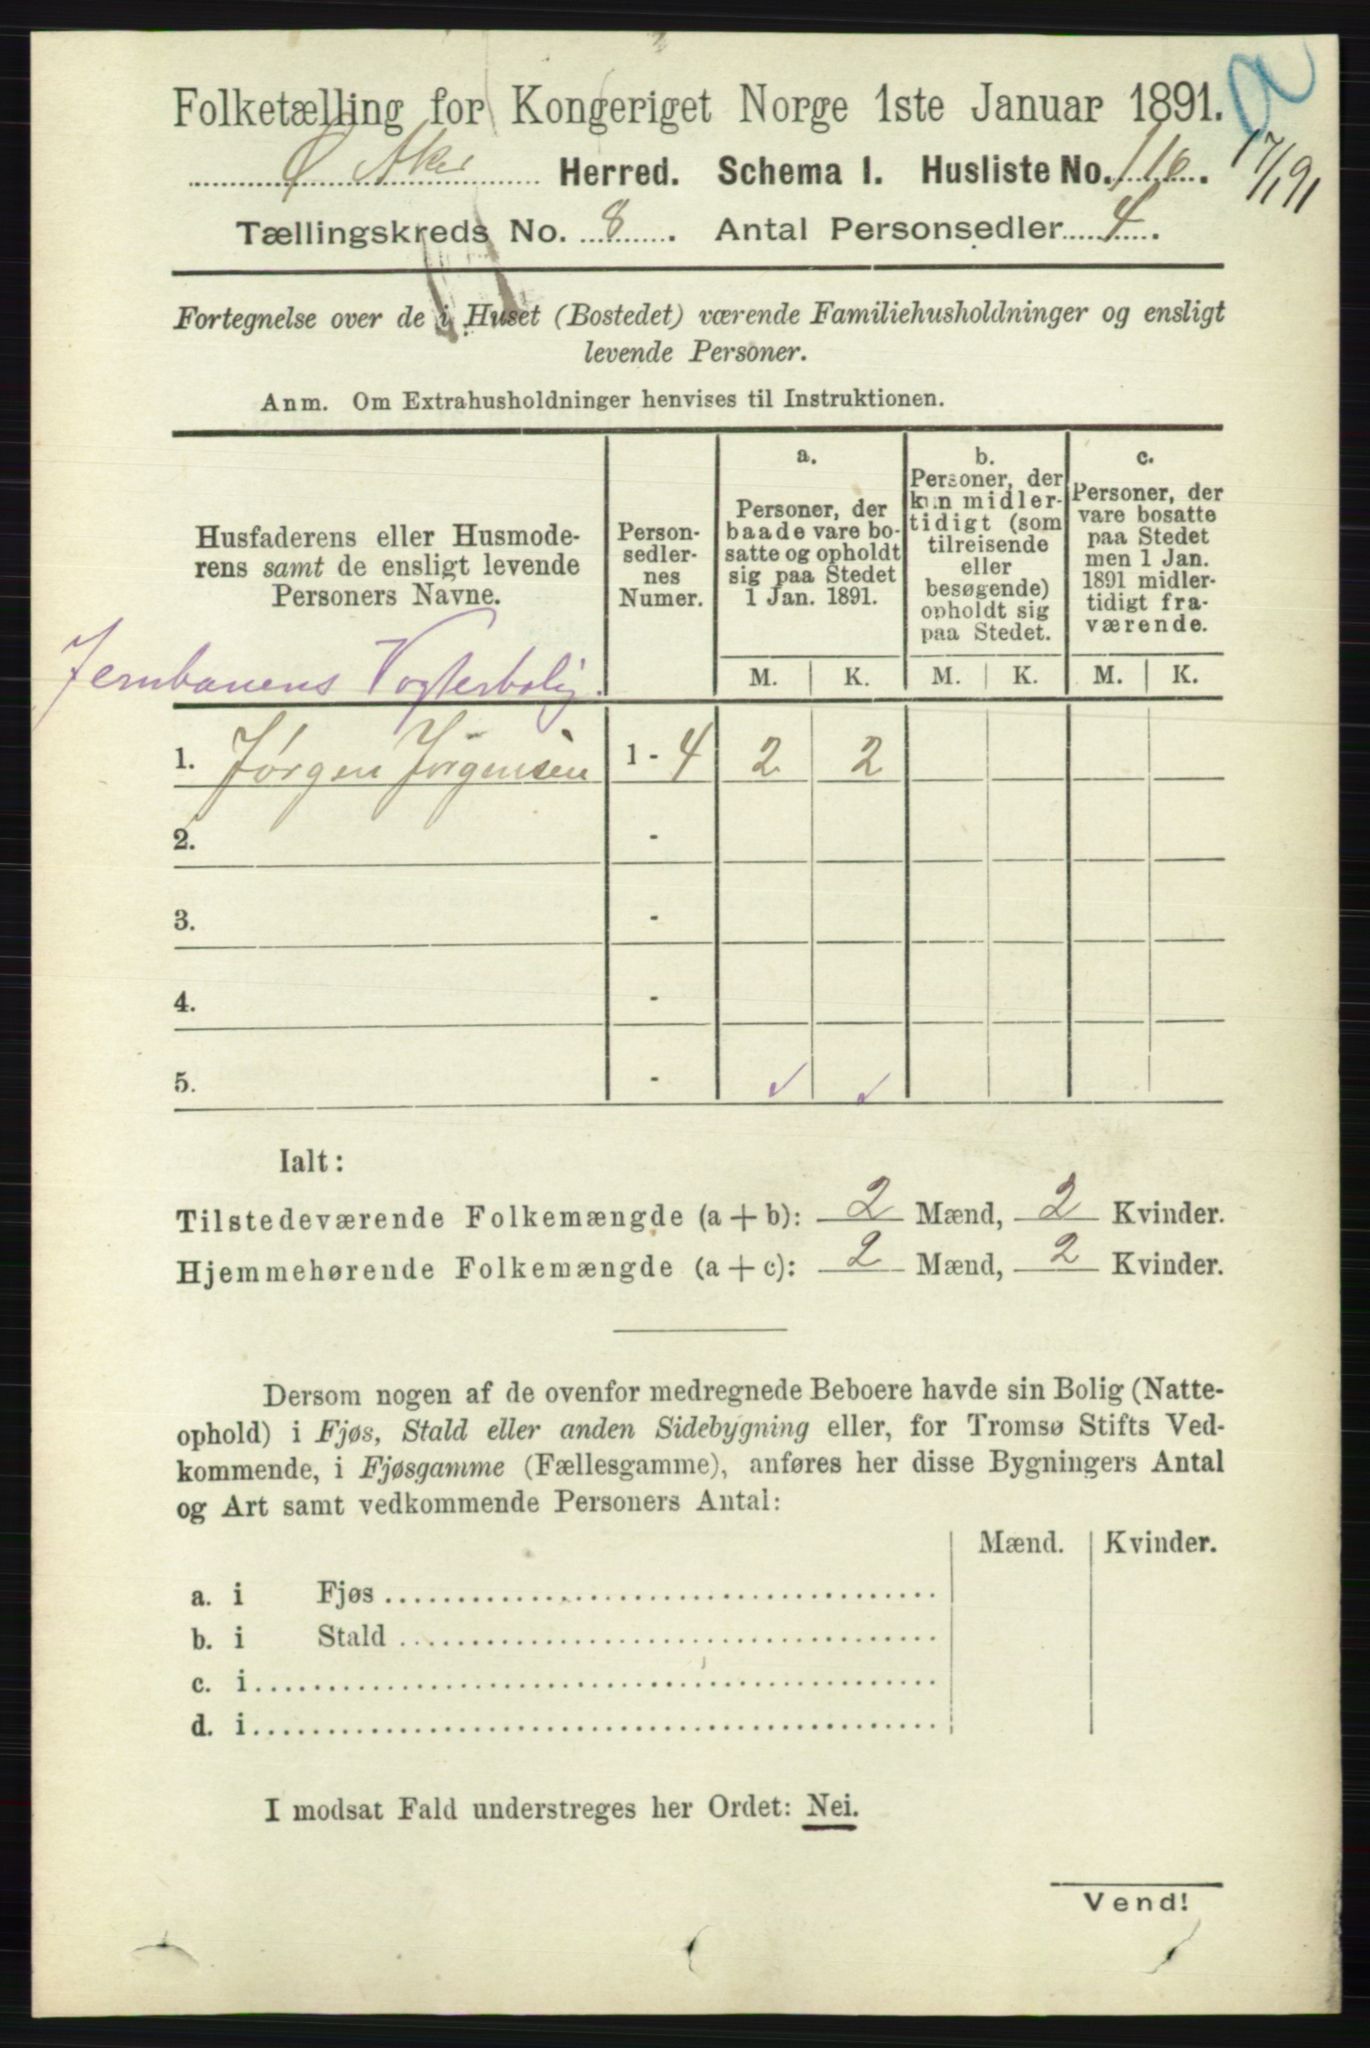 Folketælling for Kongeriget Norge 1ste Januar 1891.
Ø Aker Herred. Schema I. Husliste No. 116.
17/1 91
Tællingskreds No. 8. Antal Personsedler 4.
Fortegnelse over de i Huset (Bostedet) værende Familiehusholdninger og ensligt
levende Personer.
Anm. Om Extrahusholdninger henvises til Instruktionen.
Husfaderens eller Husmode-
rens samt de ensligt levende
Personers Navne.
Person-
sedler-
nes
Numer.
a.
Personer, der
baade vare bo-
satte og opholdt
sig paa Stedet
1 Jan. 1891.
b.
Personer, der
kun midler-
tidigt (som
tilreisende
eller
besøgende)
opholdt sig
paa Stedet.
c.
Personer, der
vare bosatte
paa Stedet
men 1 Jan.
1891 midler-
tidigt fra-
værende.
M. K. M. K. M. K.
Jernbanens Vogterbolig.
1. Jørgen Jørgensen 1 - 4 2 2
2. -
3. -
4. -
5. - ✓ ✓
Ialt:
Tilstedeværende Folkemængde (a + b): 2 Mænd, 2 Kvinder.
Hjemmehørende Folkemængde (a + c): 2 Mænd, 2 Kvinder.
Dersom nogen af de ovenfor medregnede Beboere havde sin Bolig (Natte-
ophold) i Fjøs, Stald eller anden Sidebygning eller, for Tromsø Stifts Ved-
kommende, i Fjøsgamme (Fællesgamme), anføres her disse Bygningers Antal
og Art samt vedkommende Personers Antal:
Mænd. Kvinder.
a. i Fjøs
b. i Stald
c. i
d. i
I modsat Fald understreges her Ordet: Nei.
Vend!